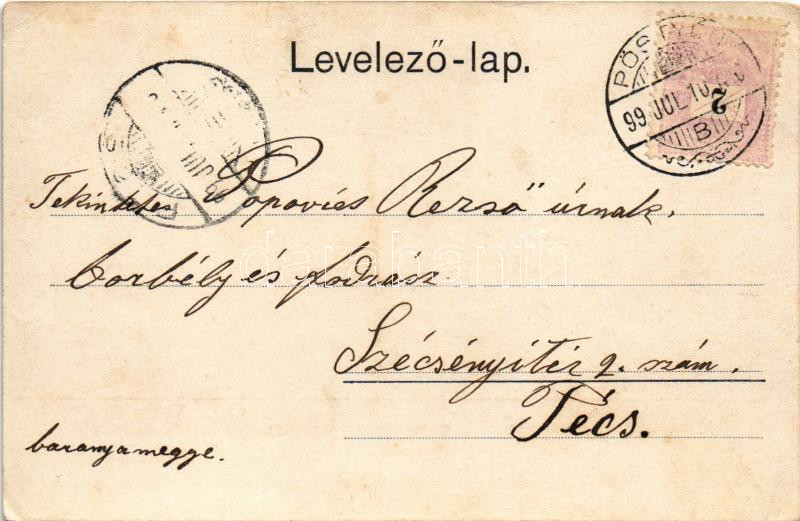 Levelező-lap.
PÖSTYÉN
99 JUL 10
B
2
Tekintetes Popovics Rezső úrnak,
borbély és fodrász
Szécsényi tér 9. szám.
Pécs.
baranyamegye.
darabanth